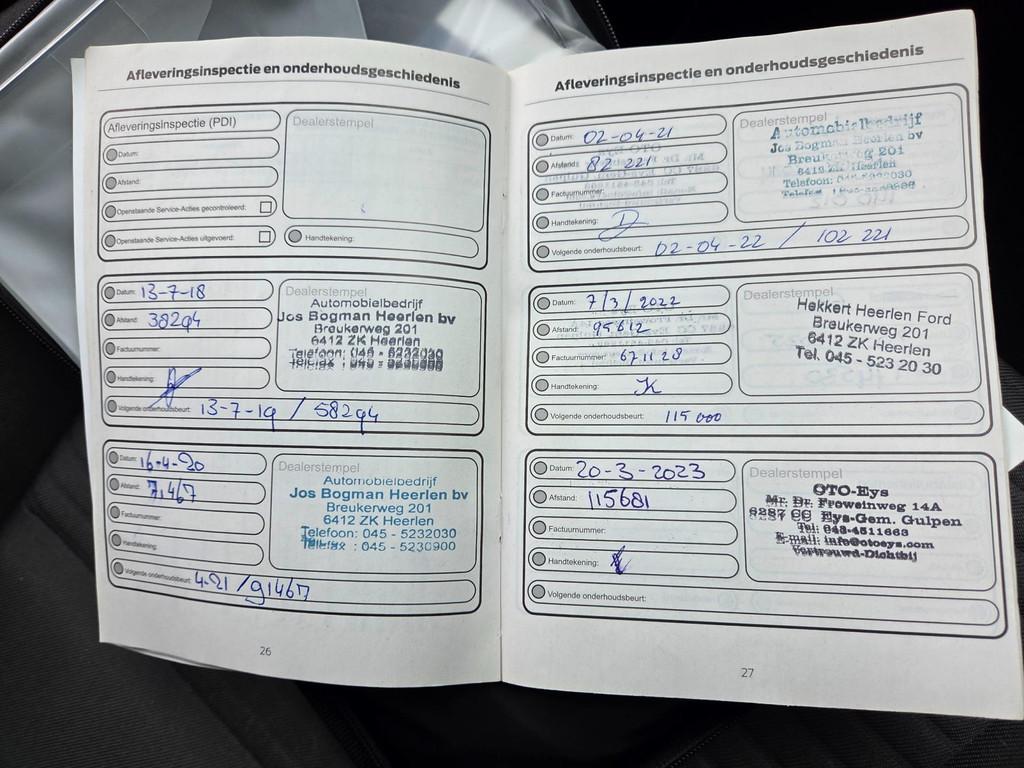 Afleveringsinspectie en onderhoudsgeschiedenis
Afleveringsinspectie (PDI)
Datum:
Afstand:
Openstaande Service-Acties gecontroleerd:
Openstaande Service-Acties uitgevoerd:
Dealerstempel
Handtekening:
Datum: 13-7-18
Afstand: 38294
Factuurnummer:
Handtekening:
Volgende onderhoudsbeurt: 13-7-19 / 58294
Dealerstempel
Automobielbedrijf
Jos Bogman Heerlen bv
Breukerweg 201
6412 ZK Heerlen
Telefoon: 045 - 5232030
Telefax : 045 - 5230900
Datum: 16-4-20
Afstand: 71467
Factuurnummer:
Handtekening:
Volgende onderhoudsbeurt: 4-21 / 91467
Dealerstempel
Automobielbedrijf
Jos Bogman Heerlen bv
Breukerweg 201
6412 ZK Heerlen
Telefoon: 045 - 5232030
Telefax : 045 - 5230900
26
Afleveringsinspectie en onderhoudsgeschiedenis
Datum: 02-04-21
Afstand: 82 221
Factuurnummer:
Handtekening:
Volgende onderhoudsbeurt: 02-04-22 / 102 221
Dealerstempel
Automobielbedrijf
Jos Bogman Heerlen bv
Breukerweg 201
6412 ZK Heerlen
Telefoon:
Telefax :
Datum: 7/3/2022
Afstand: 95612
Factuurnummer: 671128
Handtekening: K
Volgende onderhoudsbeurt: 115 000
Dealerstempel
Hekkert Heerlen Ford
Breukerweg 201
6412 ZK Heerlen
Tel. 045 - 523 20 30
Datum: 20-3-2023
Afstand: 115681
Factuurnummer:
Handtekening:
Volgende onderhoudsbeurt:
Dealerstempel
OTO-Eys
Mr. Dr. Froweinweg 14A
6287 CC Eys-Gem. Gulpen
Tel: 043-4511663
E-mail: info@otoeys.com
Vertrouwd-Dichtbij
27